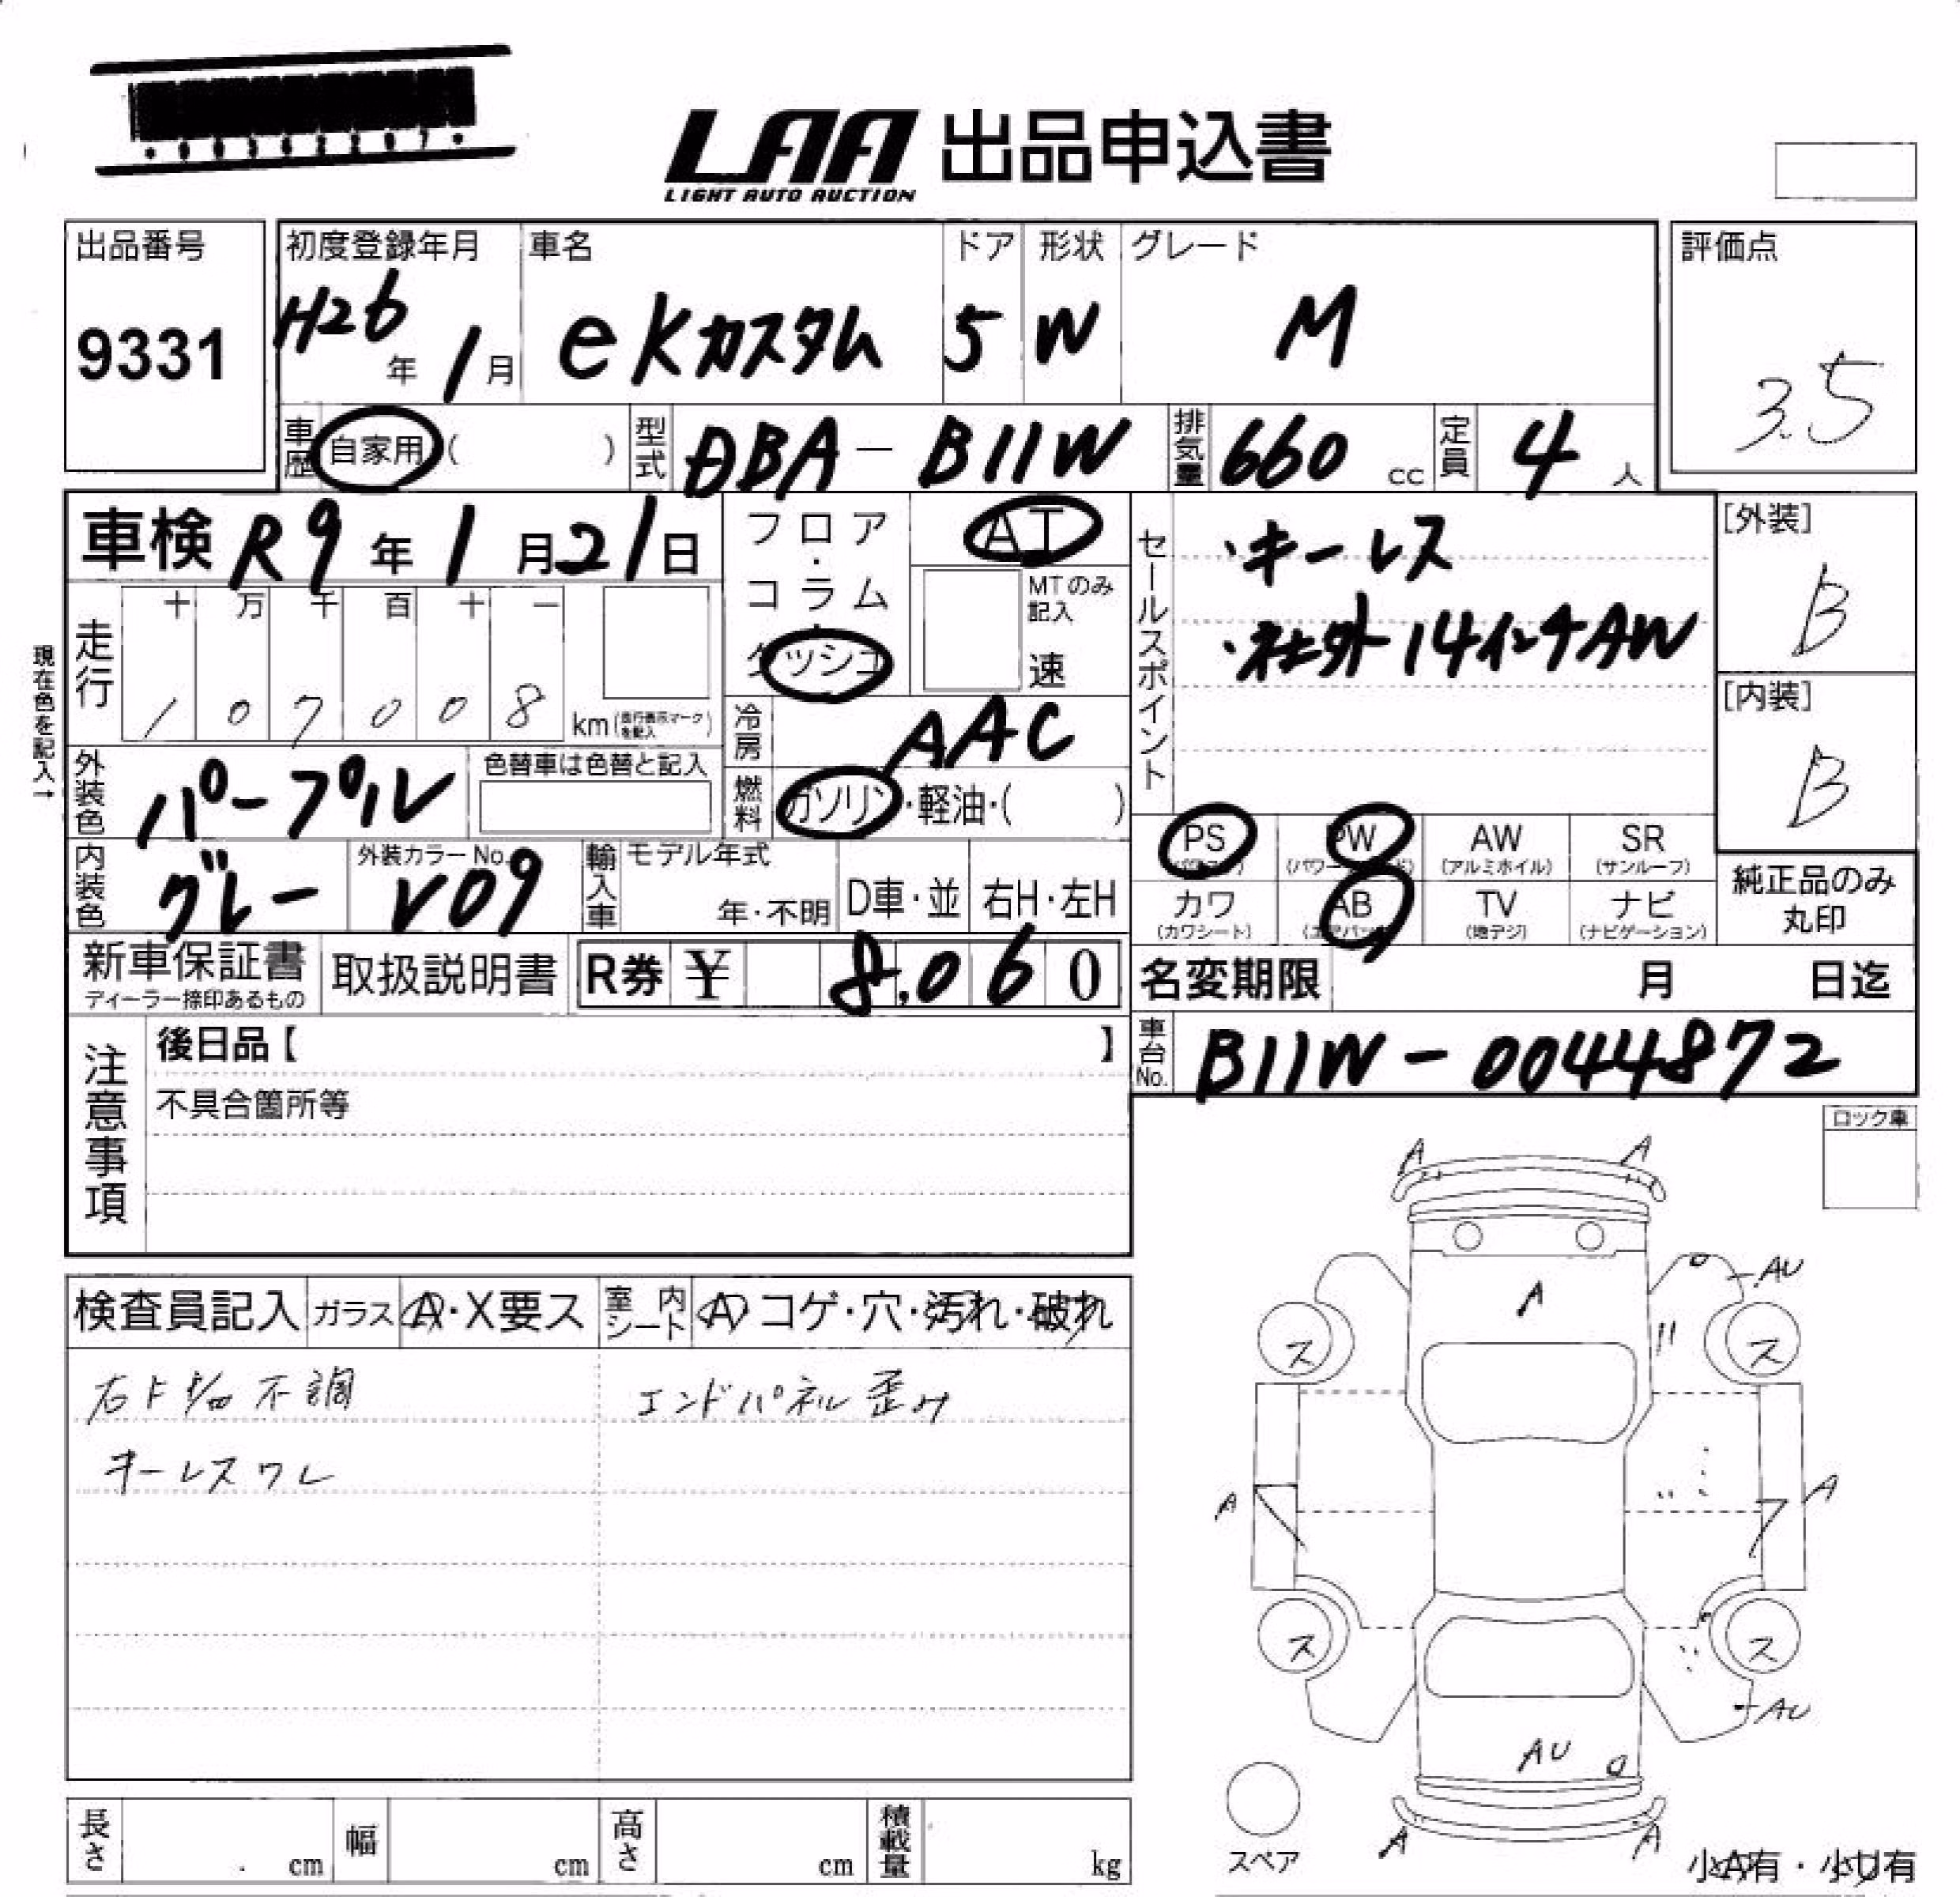 LAA 出品申込書
LIGHT AUTO AUCTION
出品番号
9331
初度登録年月
H26年 1月
車名
eKカスタム
ドア
5
形状
W
グレード
M
評価点
3.5
車歴 自家用 ( )
型式 DBA-B11W
排気量 660 cc
定員 4 人
車検 R9年 1月21日
フロア・コラム・ダッシュ
AT
MTのみ記入
速
セールスポイント
・キーレス
・社外14インチAW
[外装]
B
[内装]
B
現在色を記入→
走行
十 万 千 百 十 一
1 0 7 0 0 8 km (走行表示マークを記入)
冷房 AAC
燃料 ガソリン・軽油・( )
外装色 パープル
色替車は色替と記入
内装色 グレー
外装カラーNo. V09
輸入車
モデル年式
年・不明
D車・並
右H・左H
PS
PW
AW
(アルミホイル)
SR
(サンルーフ)
カワ
(カワシート)
AB
TV
(地デジ)
ナビ
(ナビゲーション)
純正品のみ
丸印
新車保証書
ディーラー捺印あるもの
取扱説明書
R券 ¥ 8,060
名変期限 月 日迄
車台No. B11W-0044872
注意事項
後日品【 】
不具合箇所等
ロック車
検査員記入
ガラス A・X要ス
室内シート A コゲ・穴・汚れ・破れ
不調
エンドパネル歪み
キーレスワレ
A A
AU
A
ス ス
A A
ス ス
AU
AU
A A
スペア
小A有・小U有
長さ cm
幅 cm
高さ cm
積載量 kg